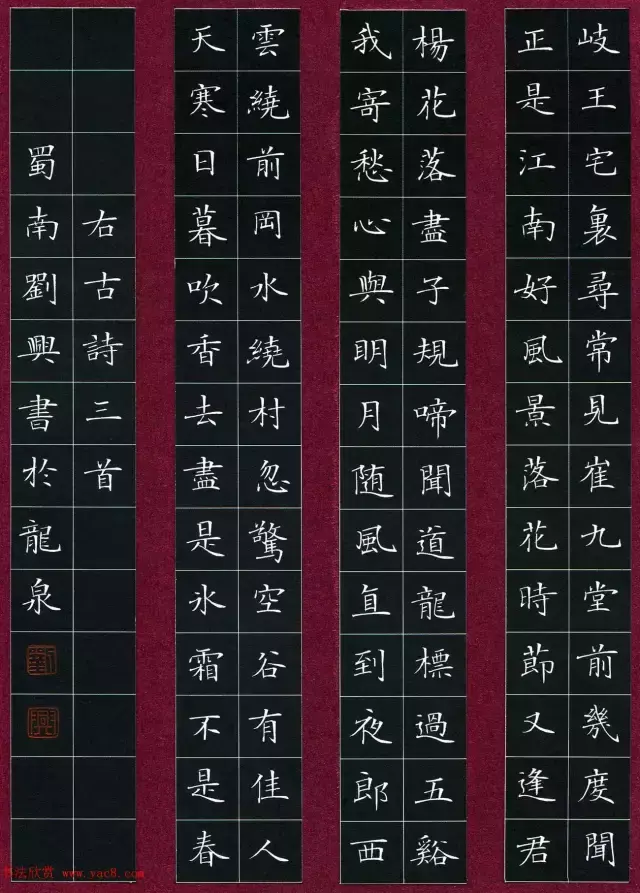 岐王宅裏尋常見崔九堂前幾度聞
正是江南好風景落花時節又逢君
楊花落盡子規啼聞道龍標過五谿
我寄愁心與明月随風直到夜郎西
雲繞前岡水繞村忽驚空谷有佳人
天寒日暮吹香去盡是冰霜不是春
右古詩三首
蜀南劉興書於龍泉
劉
興
书法欣赏 www.yac8.com